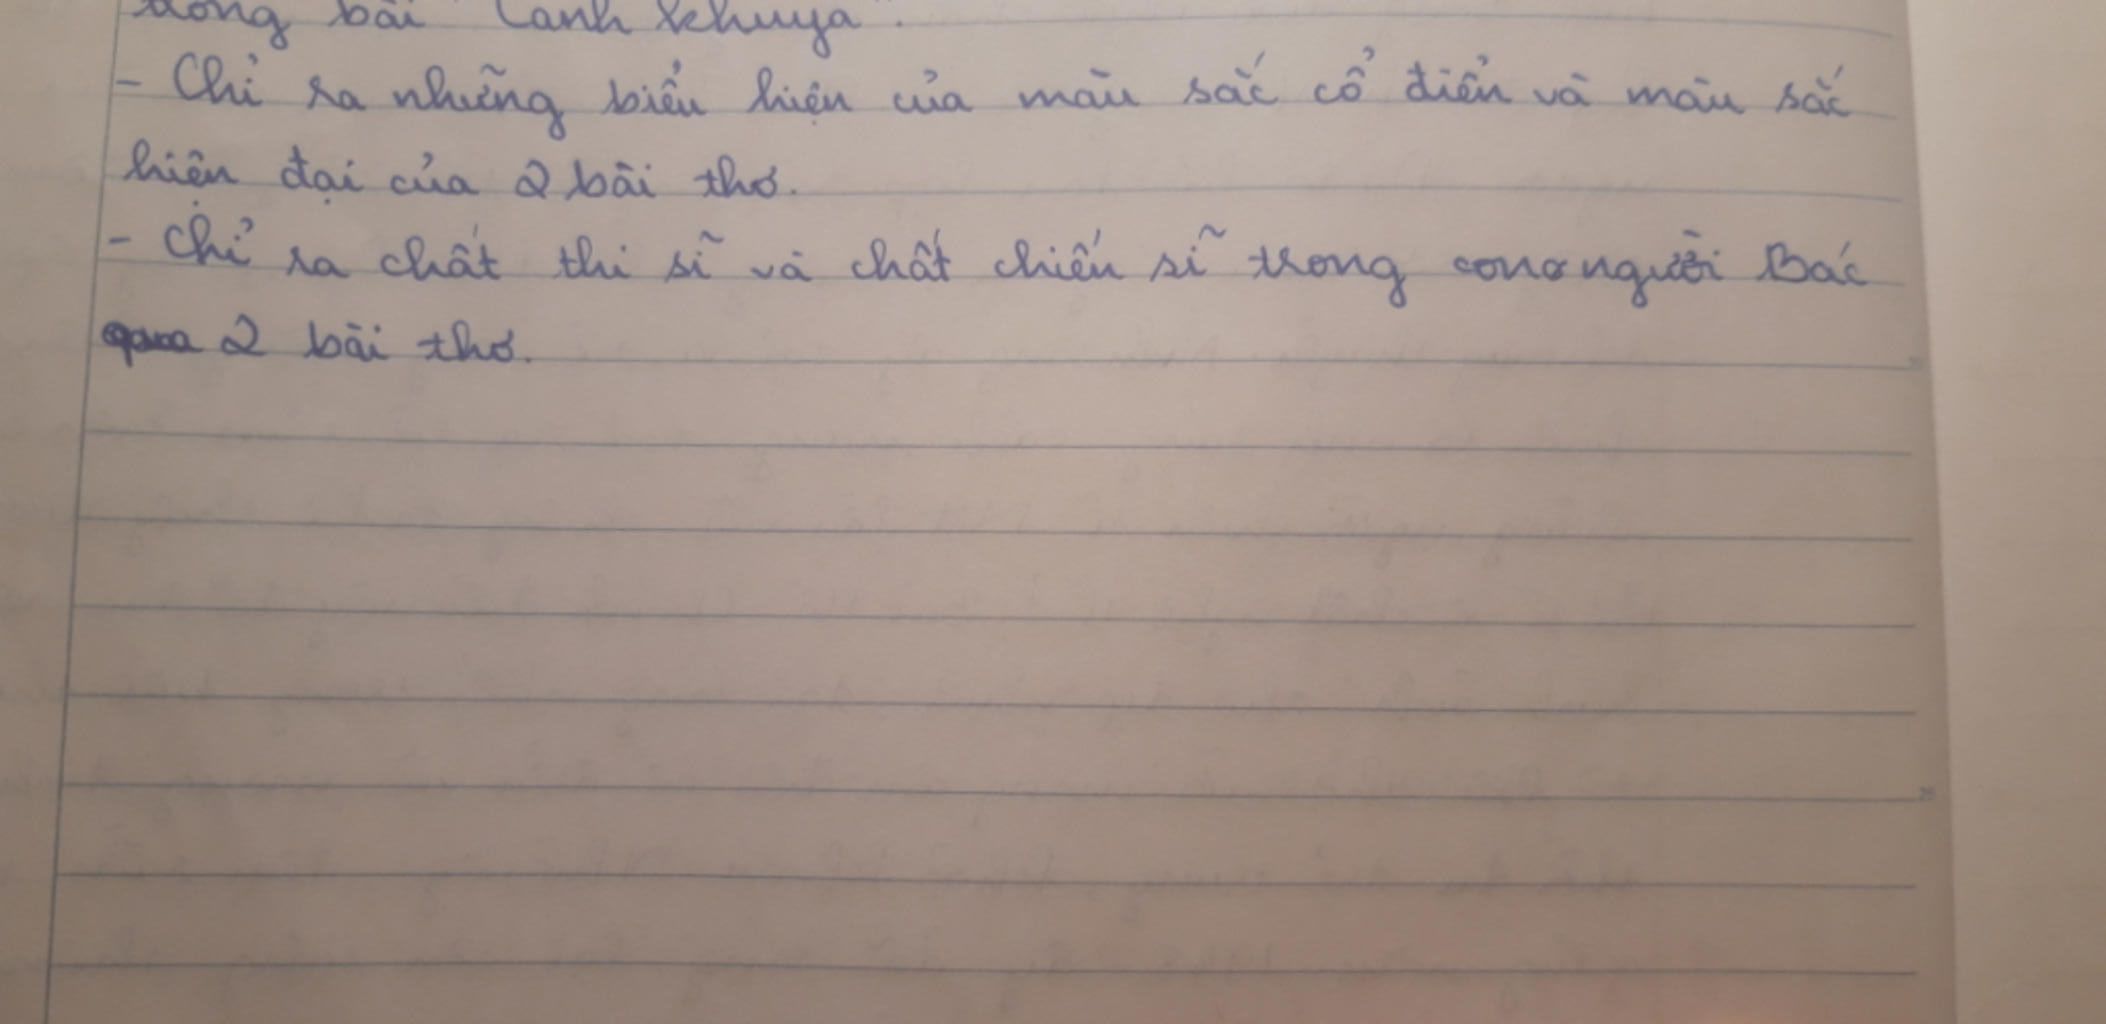 trong bài "Cảnh khuya".
- Chỉ ra những biểu hiện của màu sắc cổ điển và màu sắc
hiện đại của 2 bài thơ.
- Chỉ ra chất thi sĩ và chất chiến sĩ trong con người Bác
qua 2 bài thơ.